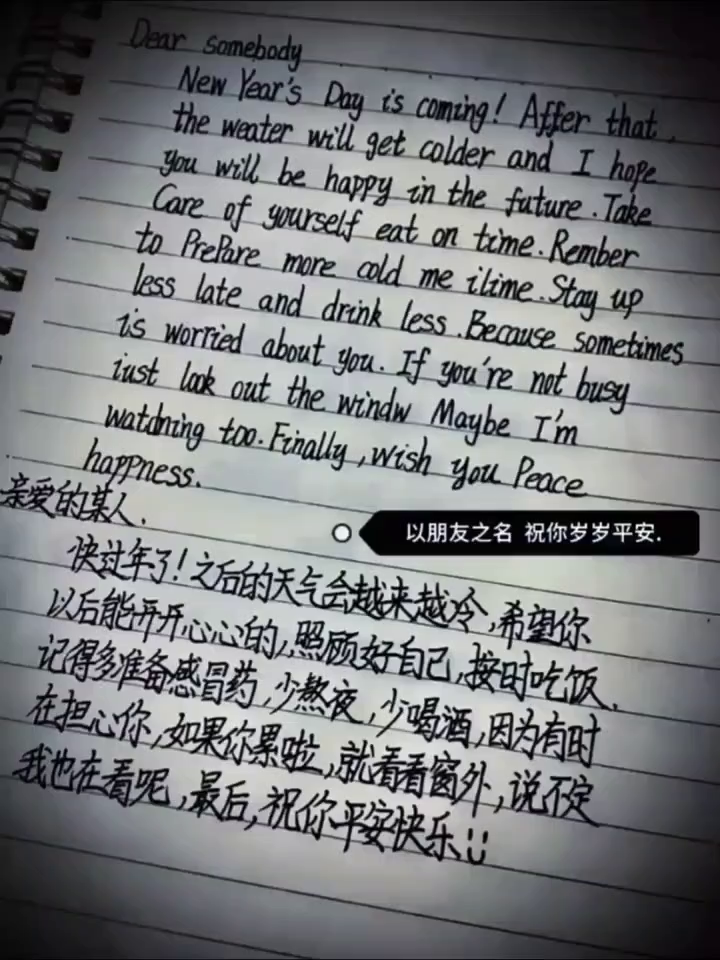 Dear somebody
New Year's Day is coming! Affer that,
the weater will get colder and I hope
you will be happy in the future. Take
Care of yourself eat on time. Rember
to PrePare more cold me ilime. Stay up
less late and drink less. Because sometimes
is worried about you. If you're not busy
iust look out the windw Maybe I'm
watdning too. Finally, wish you Peace
happness.
亲爱的某人.
以朋友之名 祝你岁岁平安.
快过年了!之后的天气会越来越冷,希望你
以后能开开心心的,照顾好自己,按时吃饭.
记得多准备感冒药,少熬夜,少喝酒,因为有时
在担心你,如果你累啦,就看看窗外,说不定
我也在看呢,最后,祝你平安快乐